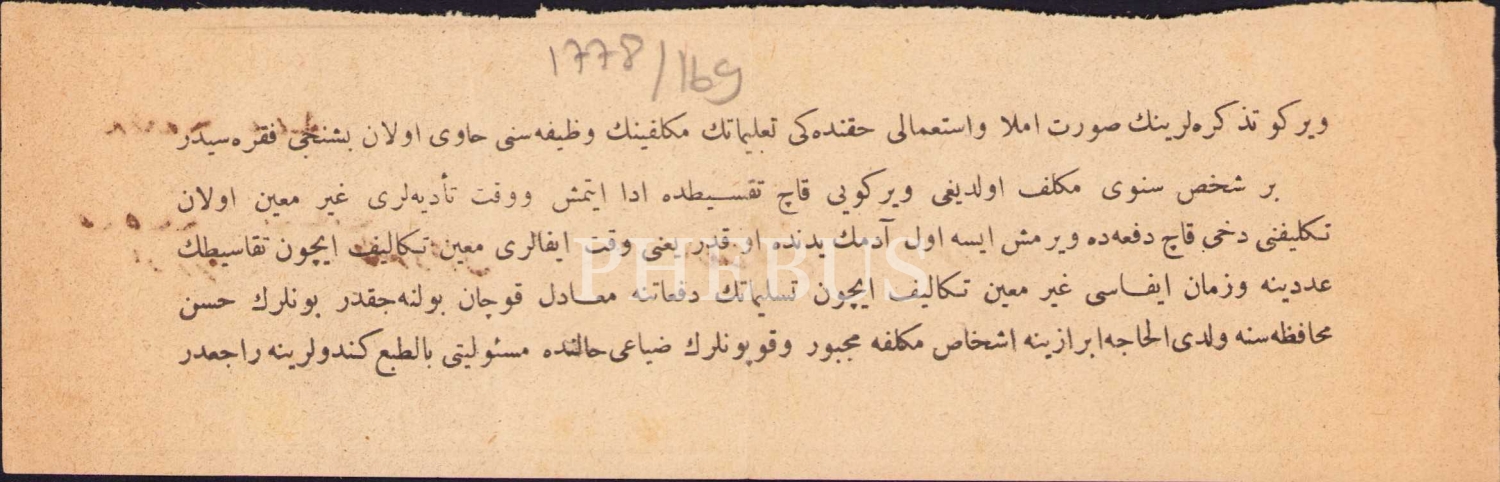 1778/169
ویركو تذكره‌لرینك صورت املا واستعمالی حقنده‌كی تعلیماتك مكلفینك وظیفه‌سنی حاوی اولان بشنجی فقره‌سیدر
بر شخص سنوی مكلف اولدیغی ویركویی قاچ تقسیطده ادا ایتمش ووقت تأدیه‌لری غیر معین اولان
تكلیفنی دخی قاچ دفعه‌ده ویرمش ایسه اول آدمك یدنده او قدر یعنی وقت ایفالری معین تكالیف ایچون تقاسیطك
عددینه وزمان ایفاسی غیر معین تكالیف ایچون تسلیماتك دفعاتنه معادل قوچان بولنه‌جقدر بونلرك حسن
محافظه‌سنه ولدی الحاجه ابرازینه اشخاص مكلفه مجبور وقوپونلرك ضیاعی حالنده مسئولیتی بالطبع كندولرینه راجعدر
PHEBUS